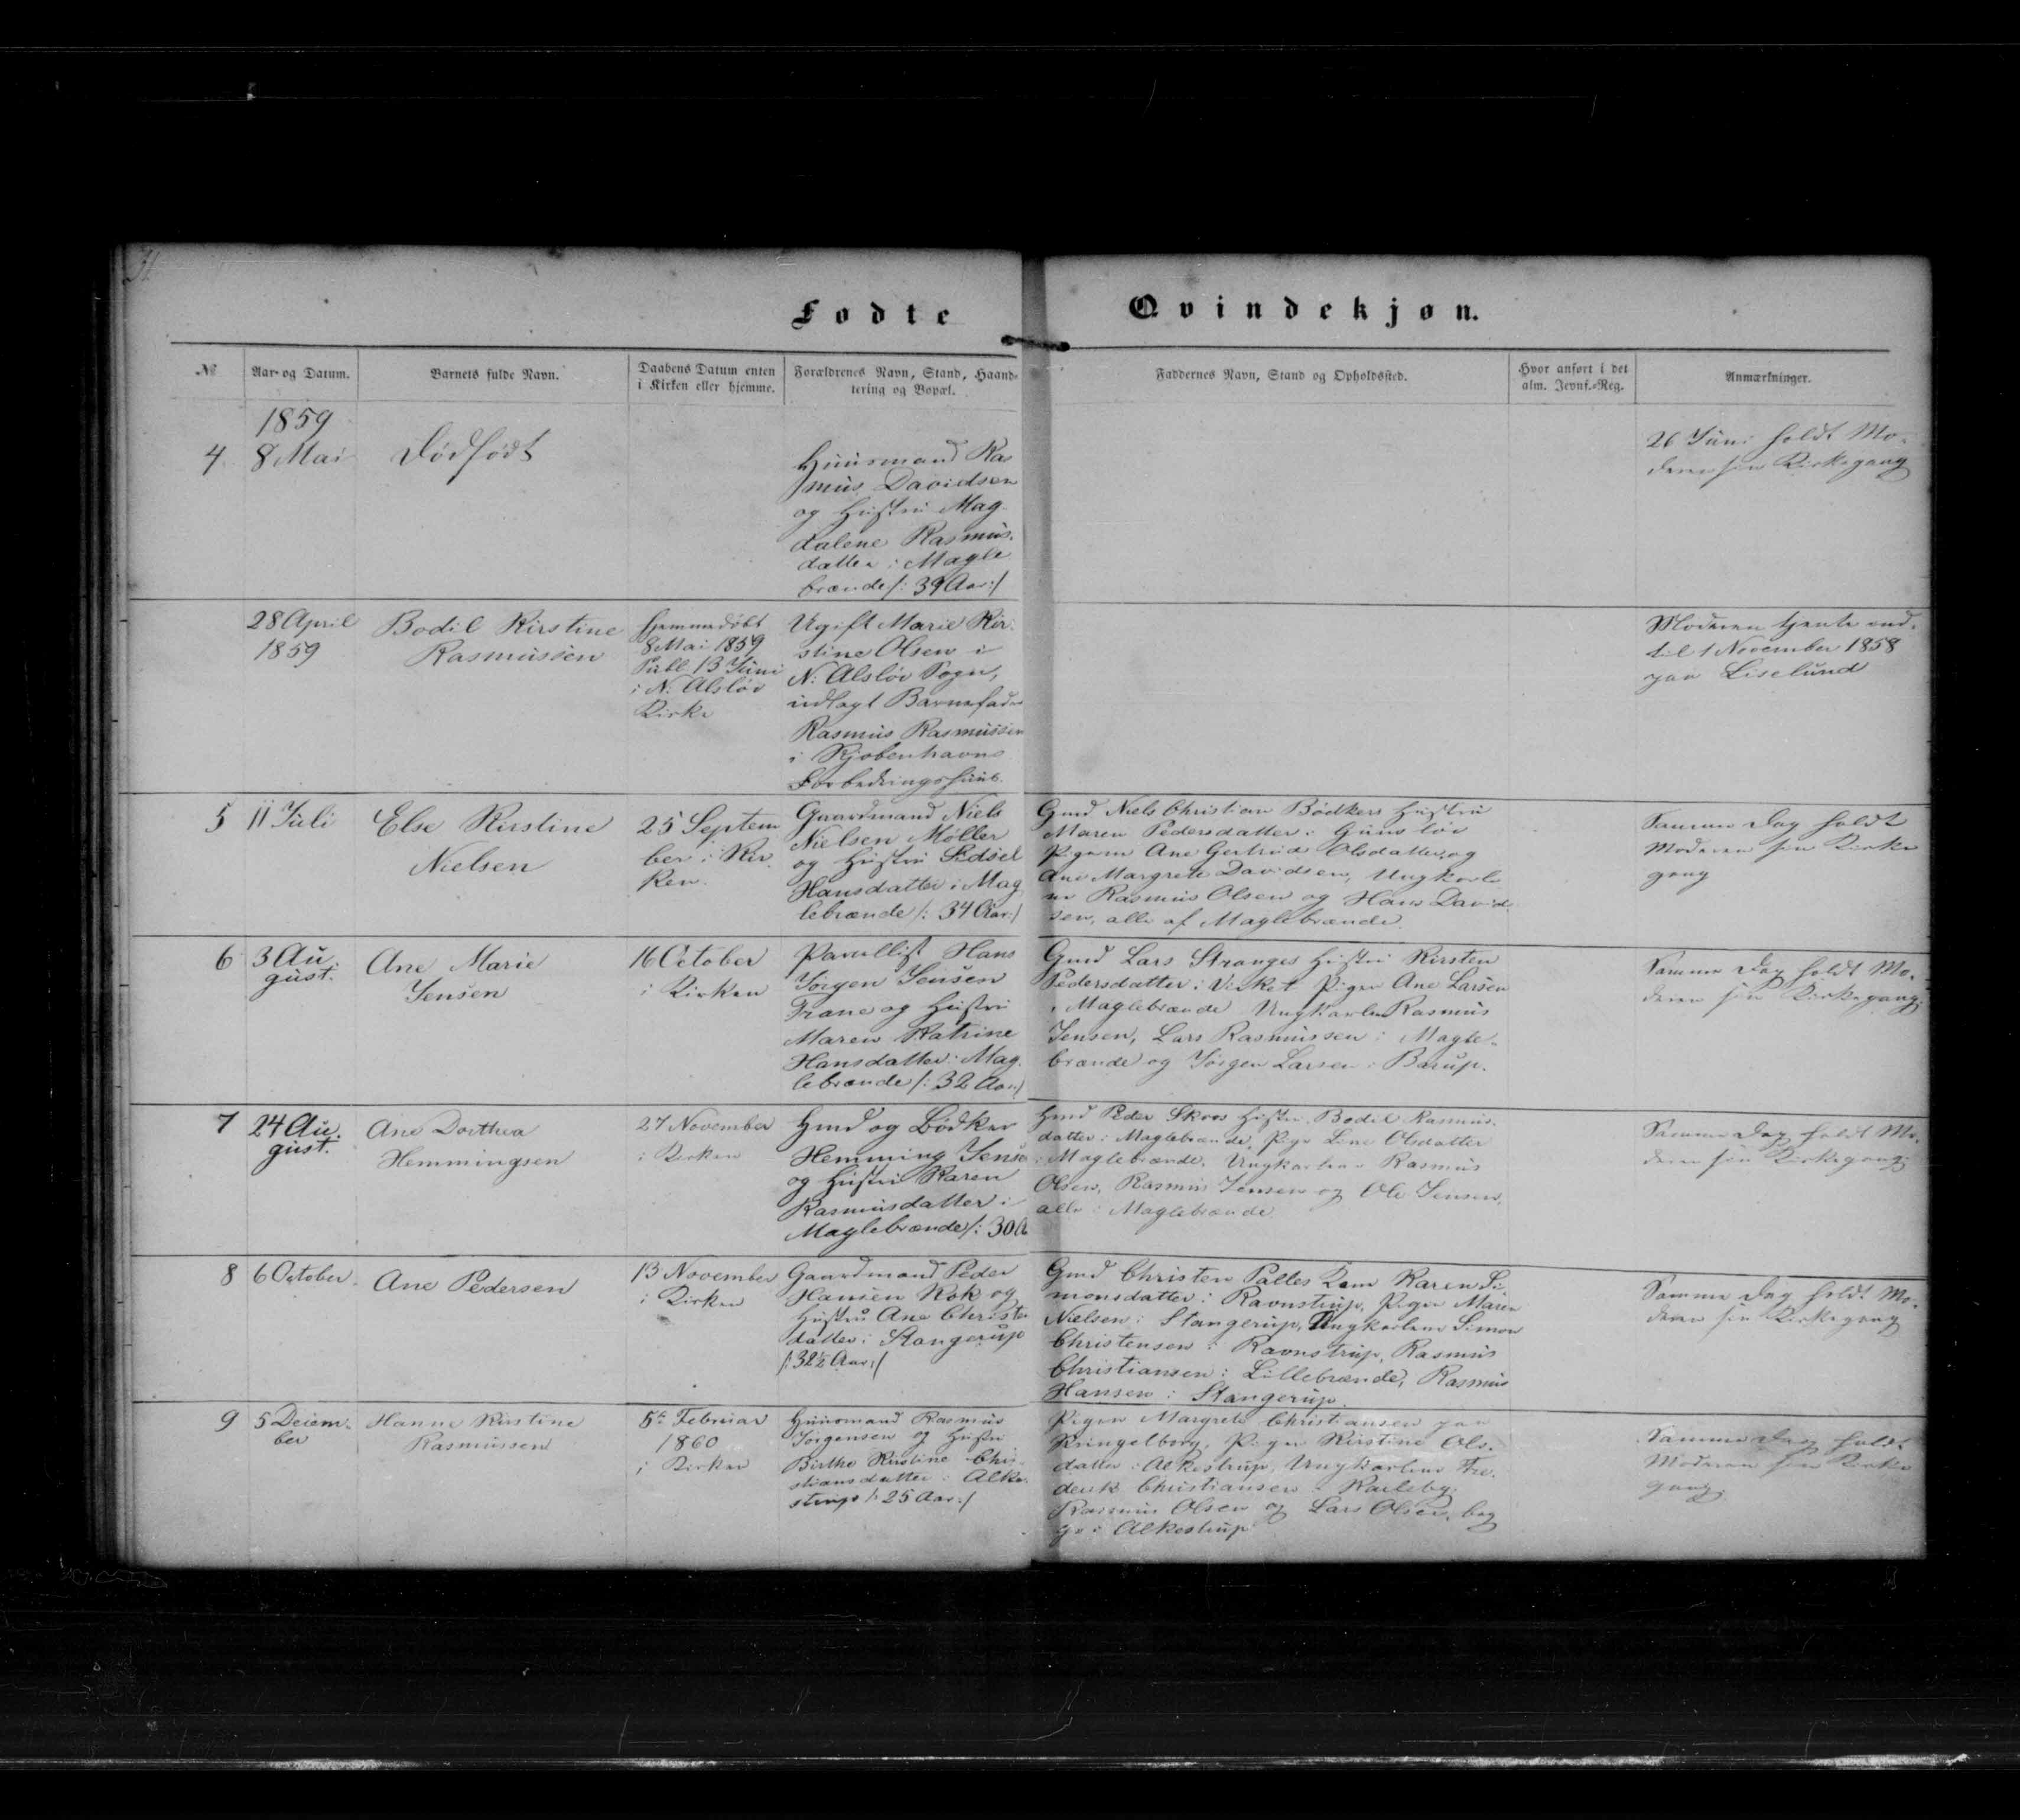 Fødte Qvindekjøn.
№
Aar- og Datum.
Barnets fulde Navn.
Daabens Datum enten
i Kirken eller hjemme.
Forældrenes Navn, Stand, Haand-
tering og Bopæl.
Faddernes Navn, Stand og Opholdssted.
Hvor anført i det
alm. Jevnf.-Reg.
Anmærkninger.
1859
4
8 Mai
Dødfødt
Huusmand Ras
mus Davidsen
og Hustru Mag
dalene Rasmus.
datter i Magle
brænde /: 39 Aar :/
26 Juni holdt Mo-
deren sin Kirkegang
28 April
1859
Bodil Kirstine
Rasmussen
hjemmedøbt
8 Mai 1859
Publ. 13 Juni
i N. Alslöv
Kirke
Ugift Marie Kir.
stine Olsen i
N. Alslöv Sogn,
udlagt Barnefader
Rasmus Rasmussen
i Kjøbenhavns
Forbedringshuus.
Moderen tjente ind.
til 1 November 1858
paa Liselund
5
11 Juli
Else Kirstine
Nielsen
25 Septem
ber i Kir.
ken.
Gaardmand Niels
Nielsen Møller
og Hustru Sidsel
Hansdatter i Mag
lebrænde /: 34 Aar :/
Gmd Niels Christian Bødkers Hustru
Maren Pedersdatter i
Pigerne Ane Gertrud Olsdatter og
Ane Margrete Davidsen, Ungkarle
ne Rasmus Olsen og Hans David
sen, alle af Maglebrænde.
Samme Dag holdt
Moderen sin Kirke
gang
6
3 Au.
gust.
Ane Marie
Jensen
16 October
i Kirken
Parcellist Hans
Jörgen Jensen
Trane og Hustru
Maren Katrine
Hansdatter i Mag.
lebrænde /: 32 Aar :/
Gmd Lars Stranges Hustru Kirsten
Pedersdatter i Virket Pigen Ane Larsen
i Maglebrænde Ungkarlene Rasmus
Jensen, Lars Rasmussen i Magle-
brænde og Jörgen Larsen i Barup.
Samme Dag holdt Mo.
deren sin Kirkegang.
7
24 Au.
gust.
Ane Dorthea
Hemmingsen
27 November
i Kirken
Hmd og Bødker
Hemming Jensen
og Hustru Karen
Rasmusdatter i
Maglebrænde /: 30 A
Hmd Peder Skovs Hustru Bodil Rasmus.
datter i Maglebrænde, Pige Line Olsdatter
i Maglebrænde. Ungkarlene Rasmus
Olsen, Rasmus Jensen og Ole Jensen,
alle i Maglebrænde
Samme Dag holdt Mo.
deren sin Kirkegang.
8
6 October.
Ane Pedersen
13 November
i Kirken
Gaardmand Peder
Hansen Kok og
Hustru Ane Christe
datter i Stangerup
/: 32½ Aar :/
Gmd Christen Palles Kone Karen Si-
monsdatter i Ravnstrup, Pigen Maren
Nielsen i Stangerup, Ungkarlene Simon
Christensen i Ravnstrup, Rasmus
Christiansen i Lillebrænde, Rasmus
Hansen i Stangerup.
Samme Dag holdt Mo.
deren sin Kirkegang
9
5 Decem-
ber
Hanne Kirstine
Rasmussen
5te Februar
1860
i Kirken
Huusmand Rasmus
Jörgensen og Hustru
Birthe Kirstine Chri-
stiansdatter i Alke.
strup /: 25 Aar :/
Pigen Margrete Christiansen paa
Kringelborg, Pigen Kirstine Ols.
datter i Alkestrup, Ungkarlene Fre.
derik Christiansen i Karleby.
Rasmus Olsen og Lars Olsen, beg
ge i Alkestrup
Samme Dag holdt
Moderen sin Kirke
gang.